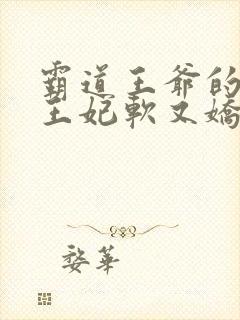 霸道王爺的
王妃軟又嬌
婺華